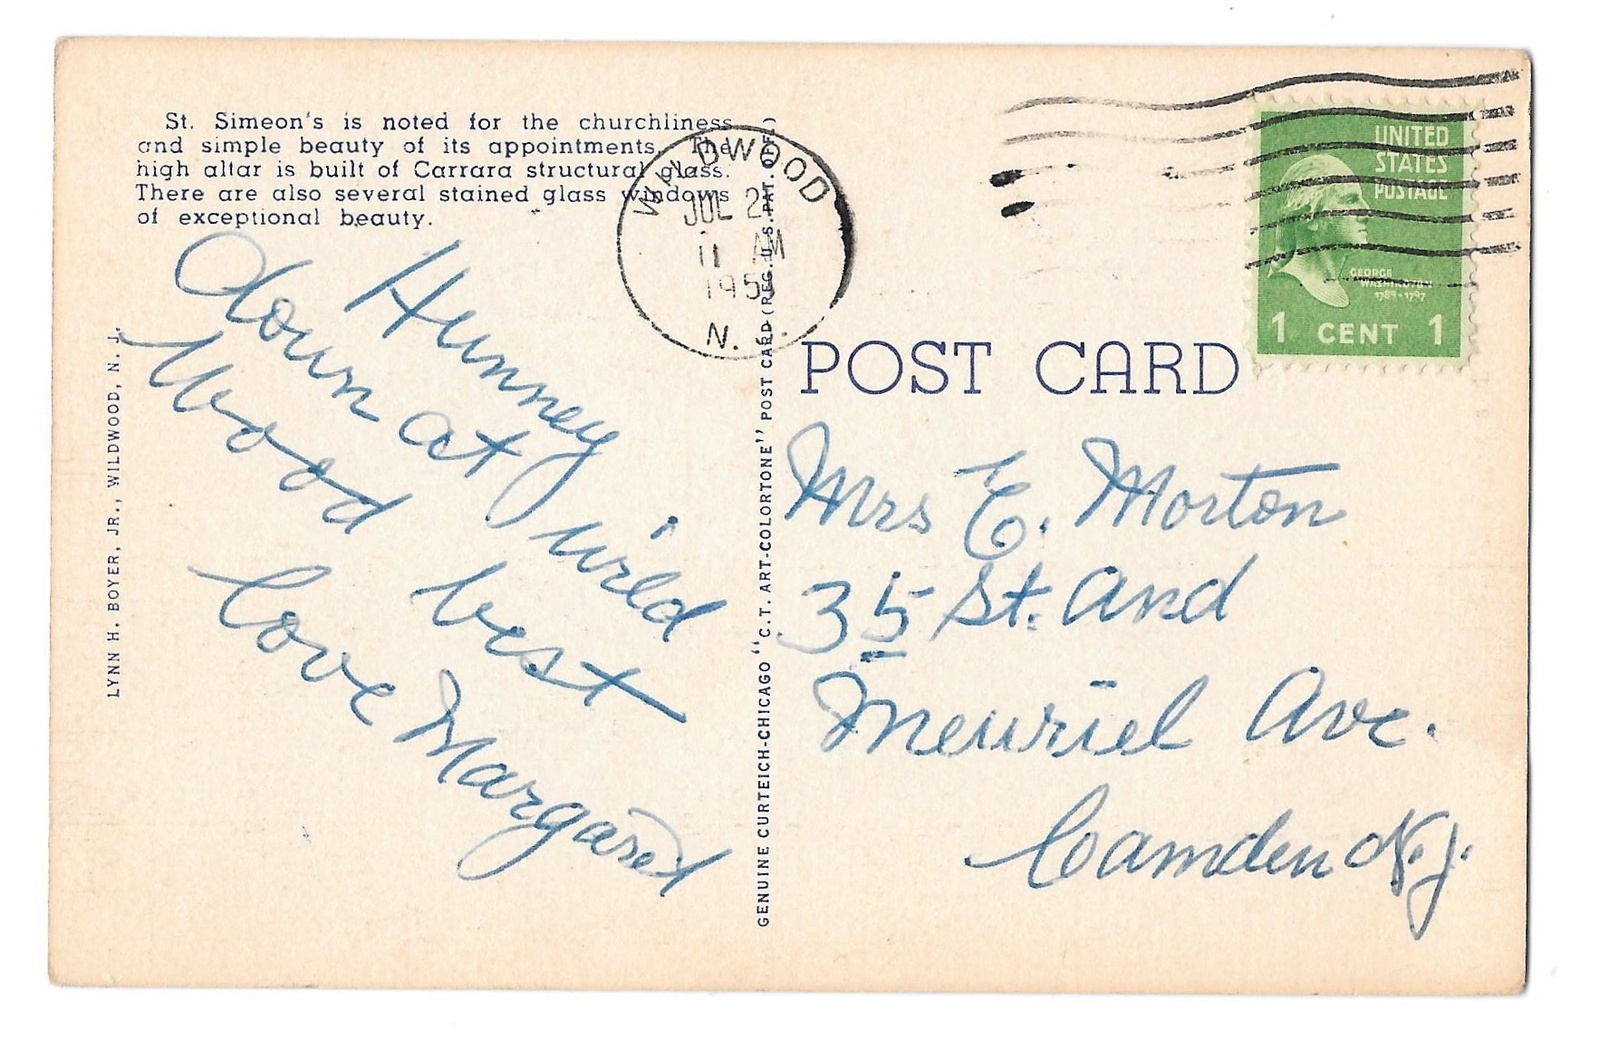 St. Simeon's is noted for the churchliness
and simple beauty of its appointments. The
high altar is built of Carrara structural glass.
There are also several stained glass windows
of exceptional beauty.
LYNN H. BOYER, JR., WILDWOOD, N. J.
Hunney
down at wild
Wood best
love Margaret
GENUINE CURTEICH-CHICAGO "C.T. ART-COLORTONE" POST CARD (REG. U.S. PAT. OFF.)
WILDWOOD
JUL 2
11 AM
N.
UNITED
STATES
POSTAGE
GEORGE
WASHINGTON
1789-1797
1 CENT 1
POST CARD
Mrs E. Morton
35 St. and
Meuriel Ave.
Camden N.J.